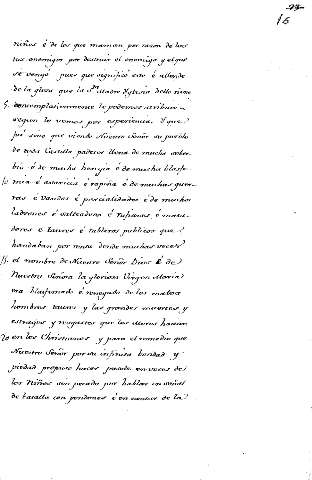 15
niños é de los que maman por razon de los
tus enemigos por destruir el enemigo y el que
se vengó pues que significó esto é allende
de la glosa que la Sta. Madre Yglesia dello tiene
5. contemplativamente le podemos atribuir
segun lo vemos por esperiencia. Y que
fué sino que viendo Nuestro Señor su pueblo
de toda Castilla padecer llena de mucha sober
bia é de mucha heregia é de mucha blasfe
10 mia é avaricia é rapiña é de muchas guer
ras e vandos é parcialidades é de muchos
ladrones é salteadores é rufianes é mata
dores e tahures é tableros publicos que
handaban por renta donde muchas veces
15. el nombre de Nuestro Señor Dios é de
Nuestra Señora la gloriosa Virgen Maria
era blasfemado é renegado de los malos
hombres tahures y las grandes muertes y
estragos y rescates que los Moros hacian
20 en los Christianos y para el remedio que
Nuestro Señor por su infinita bondad y
piedad propuso hacer puesta en voces de
los Niños aun pecado por hablar en señal
de batalla con pendones é en cantar de la